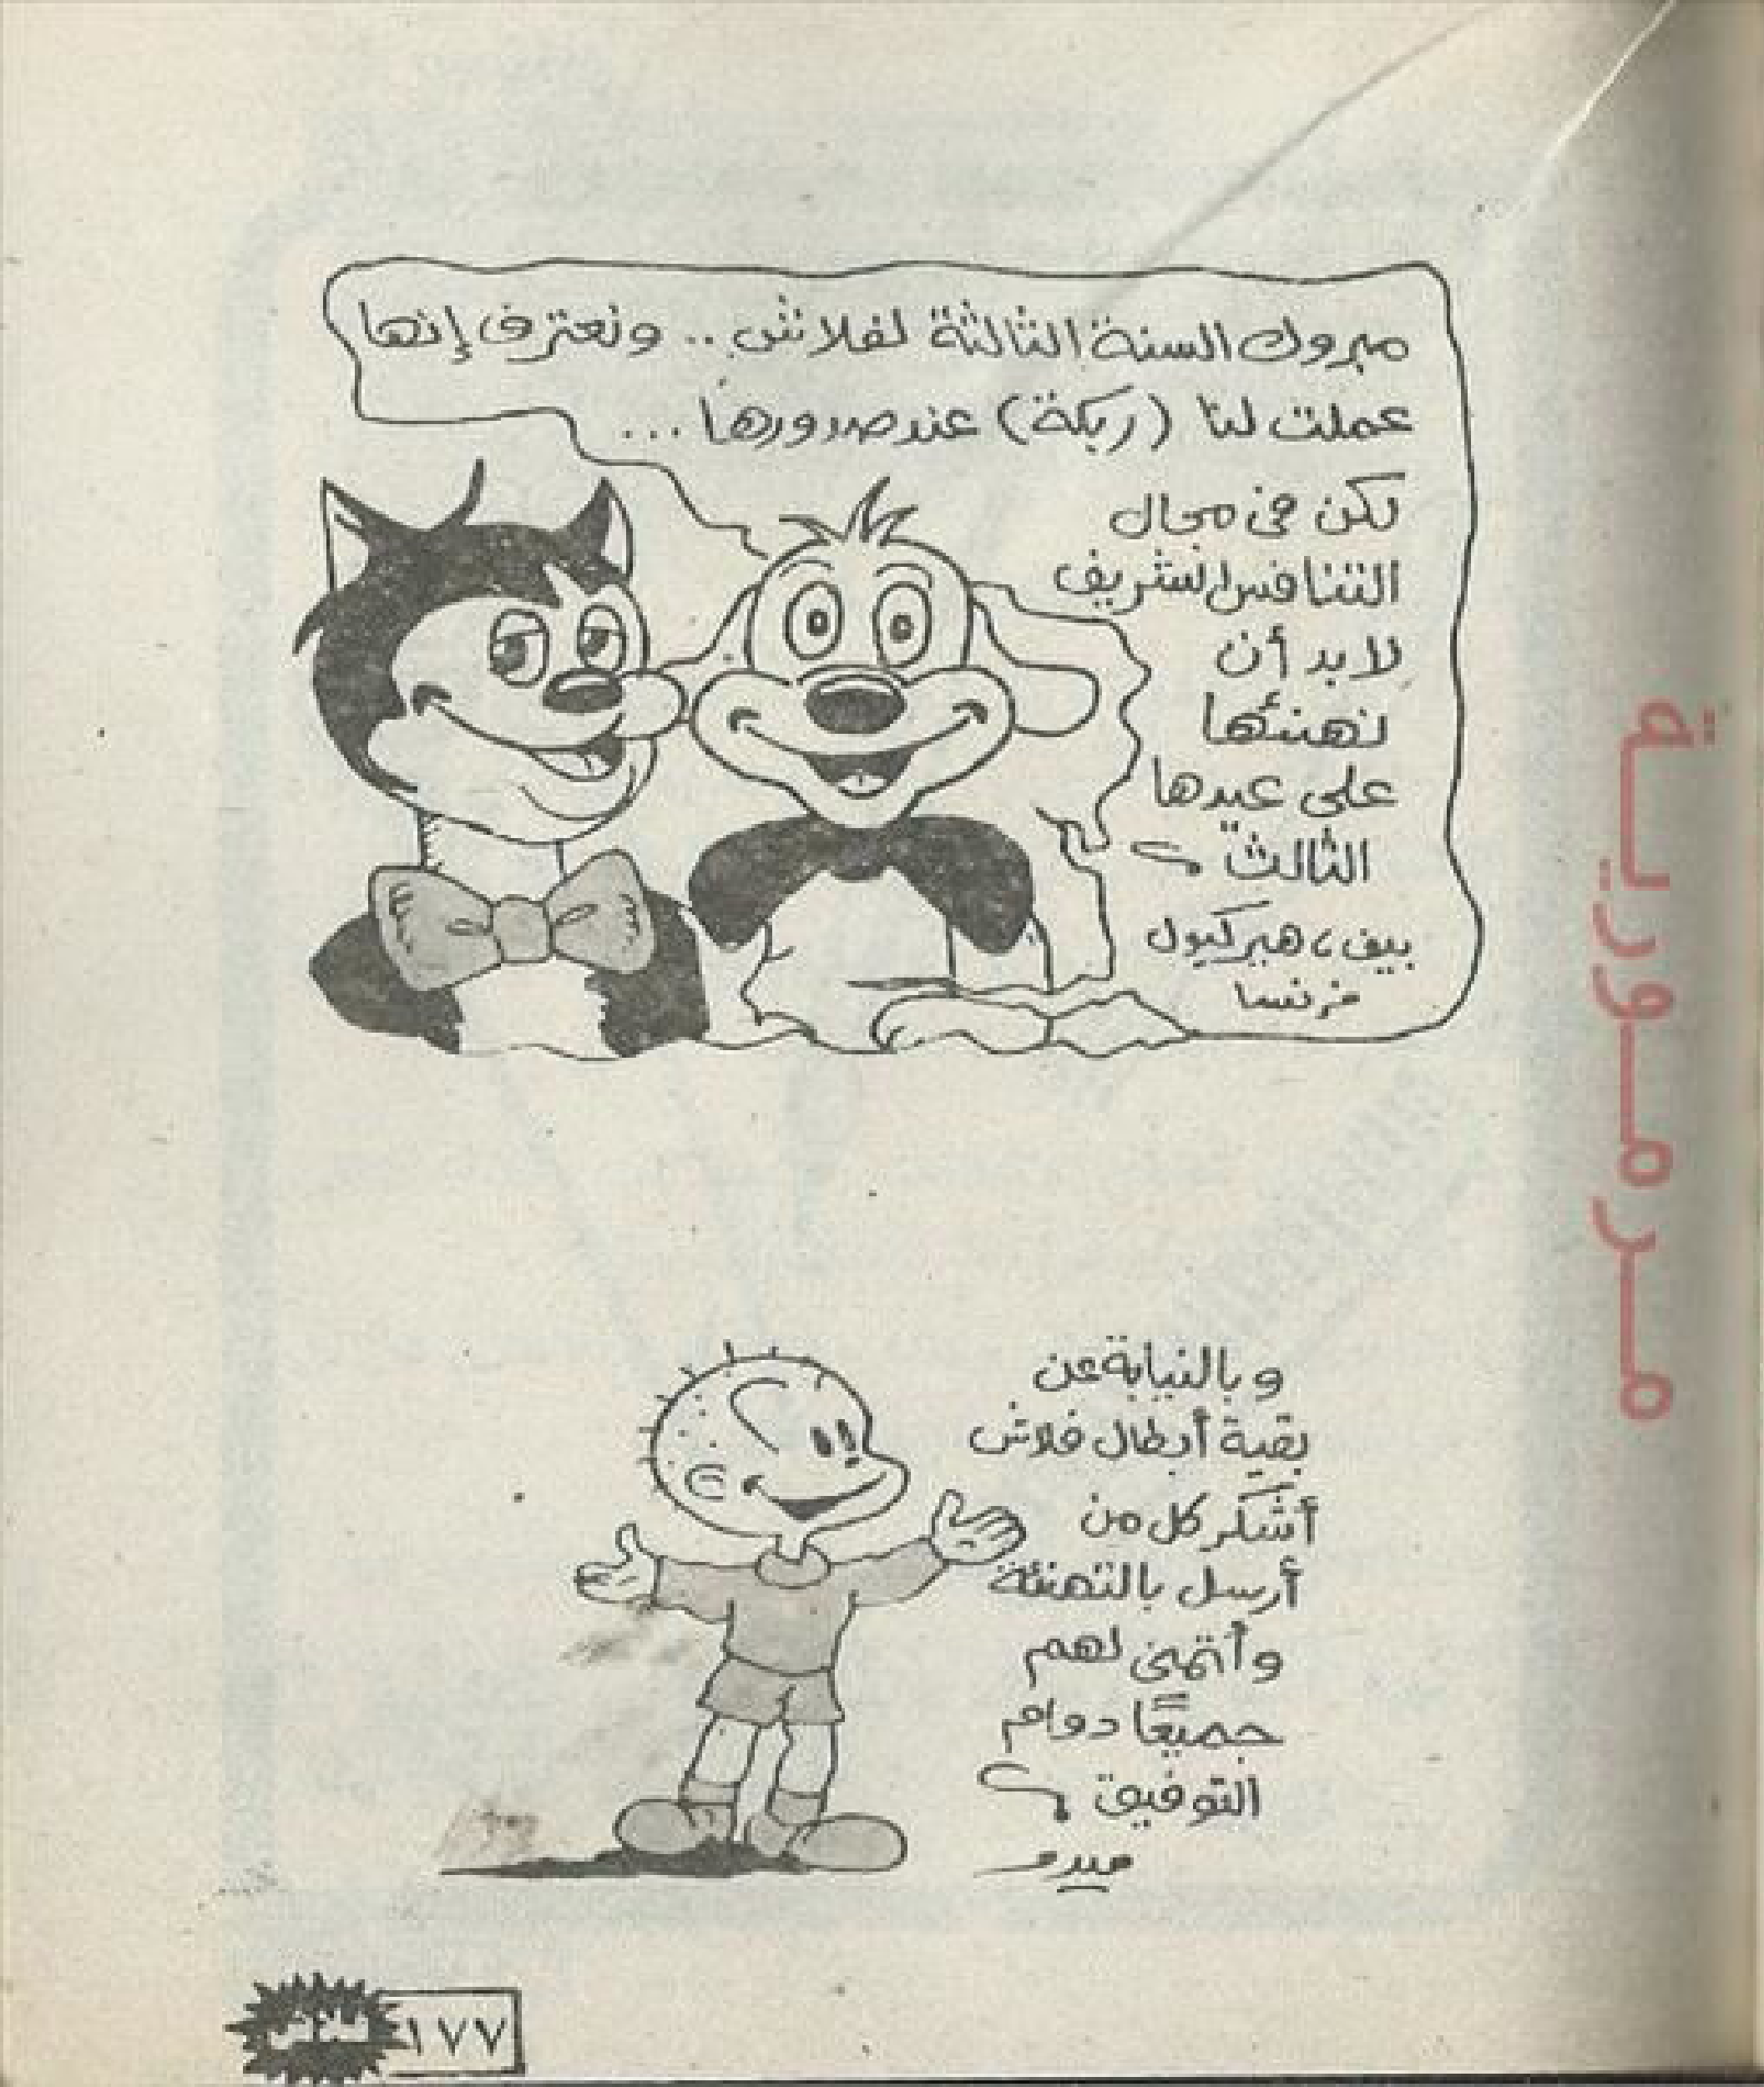 مبروك السنة الثالثة لفلاش .. ونعترف إنها
عملت لنا (ربكة) عند صدورها ...
لكن فى مجال
التنافس الشريف
لا بد أن
نهنئها
على عيدها
الثالث
بيف، هيركيول
فرنسا
وبالنيابة عن
بقية أبطال فلاش
أشكر كل من
أرسل بالتهنئة
وأتمنى لهم
جميعًا دوام
التوفيق
ميدو
١٧٧
مرمورية